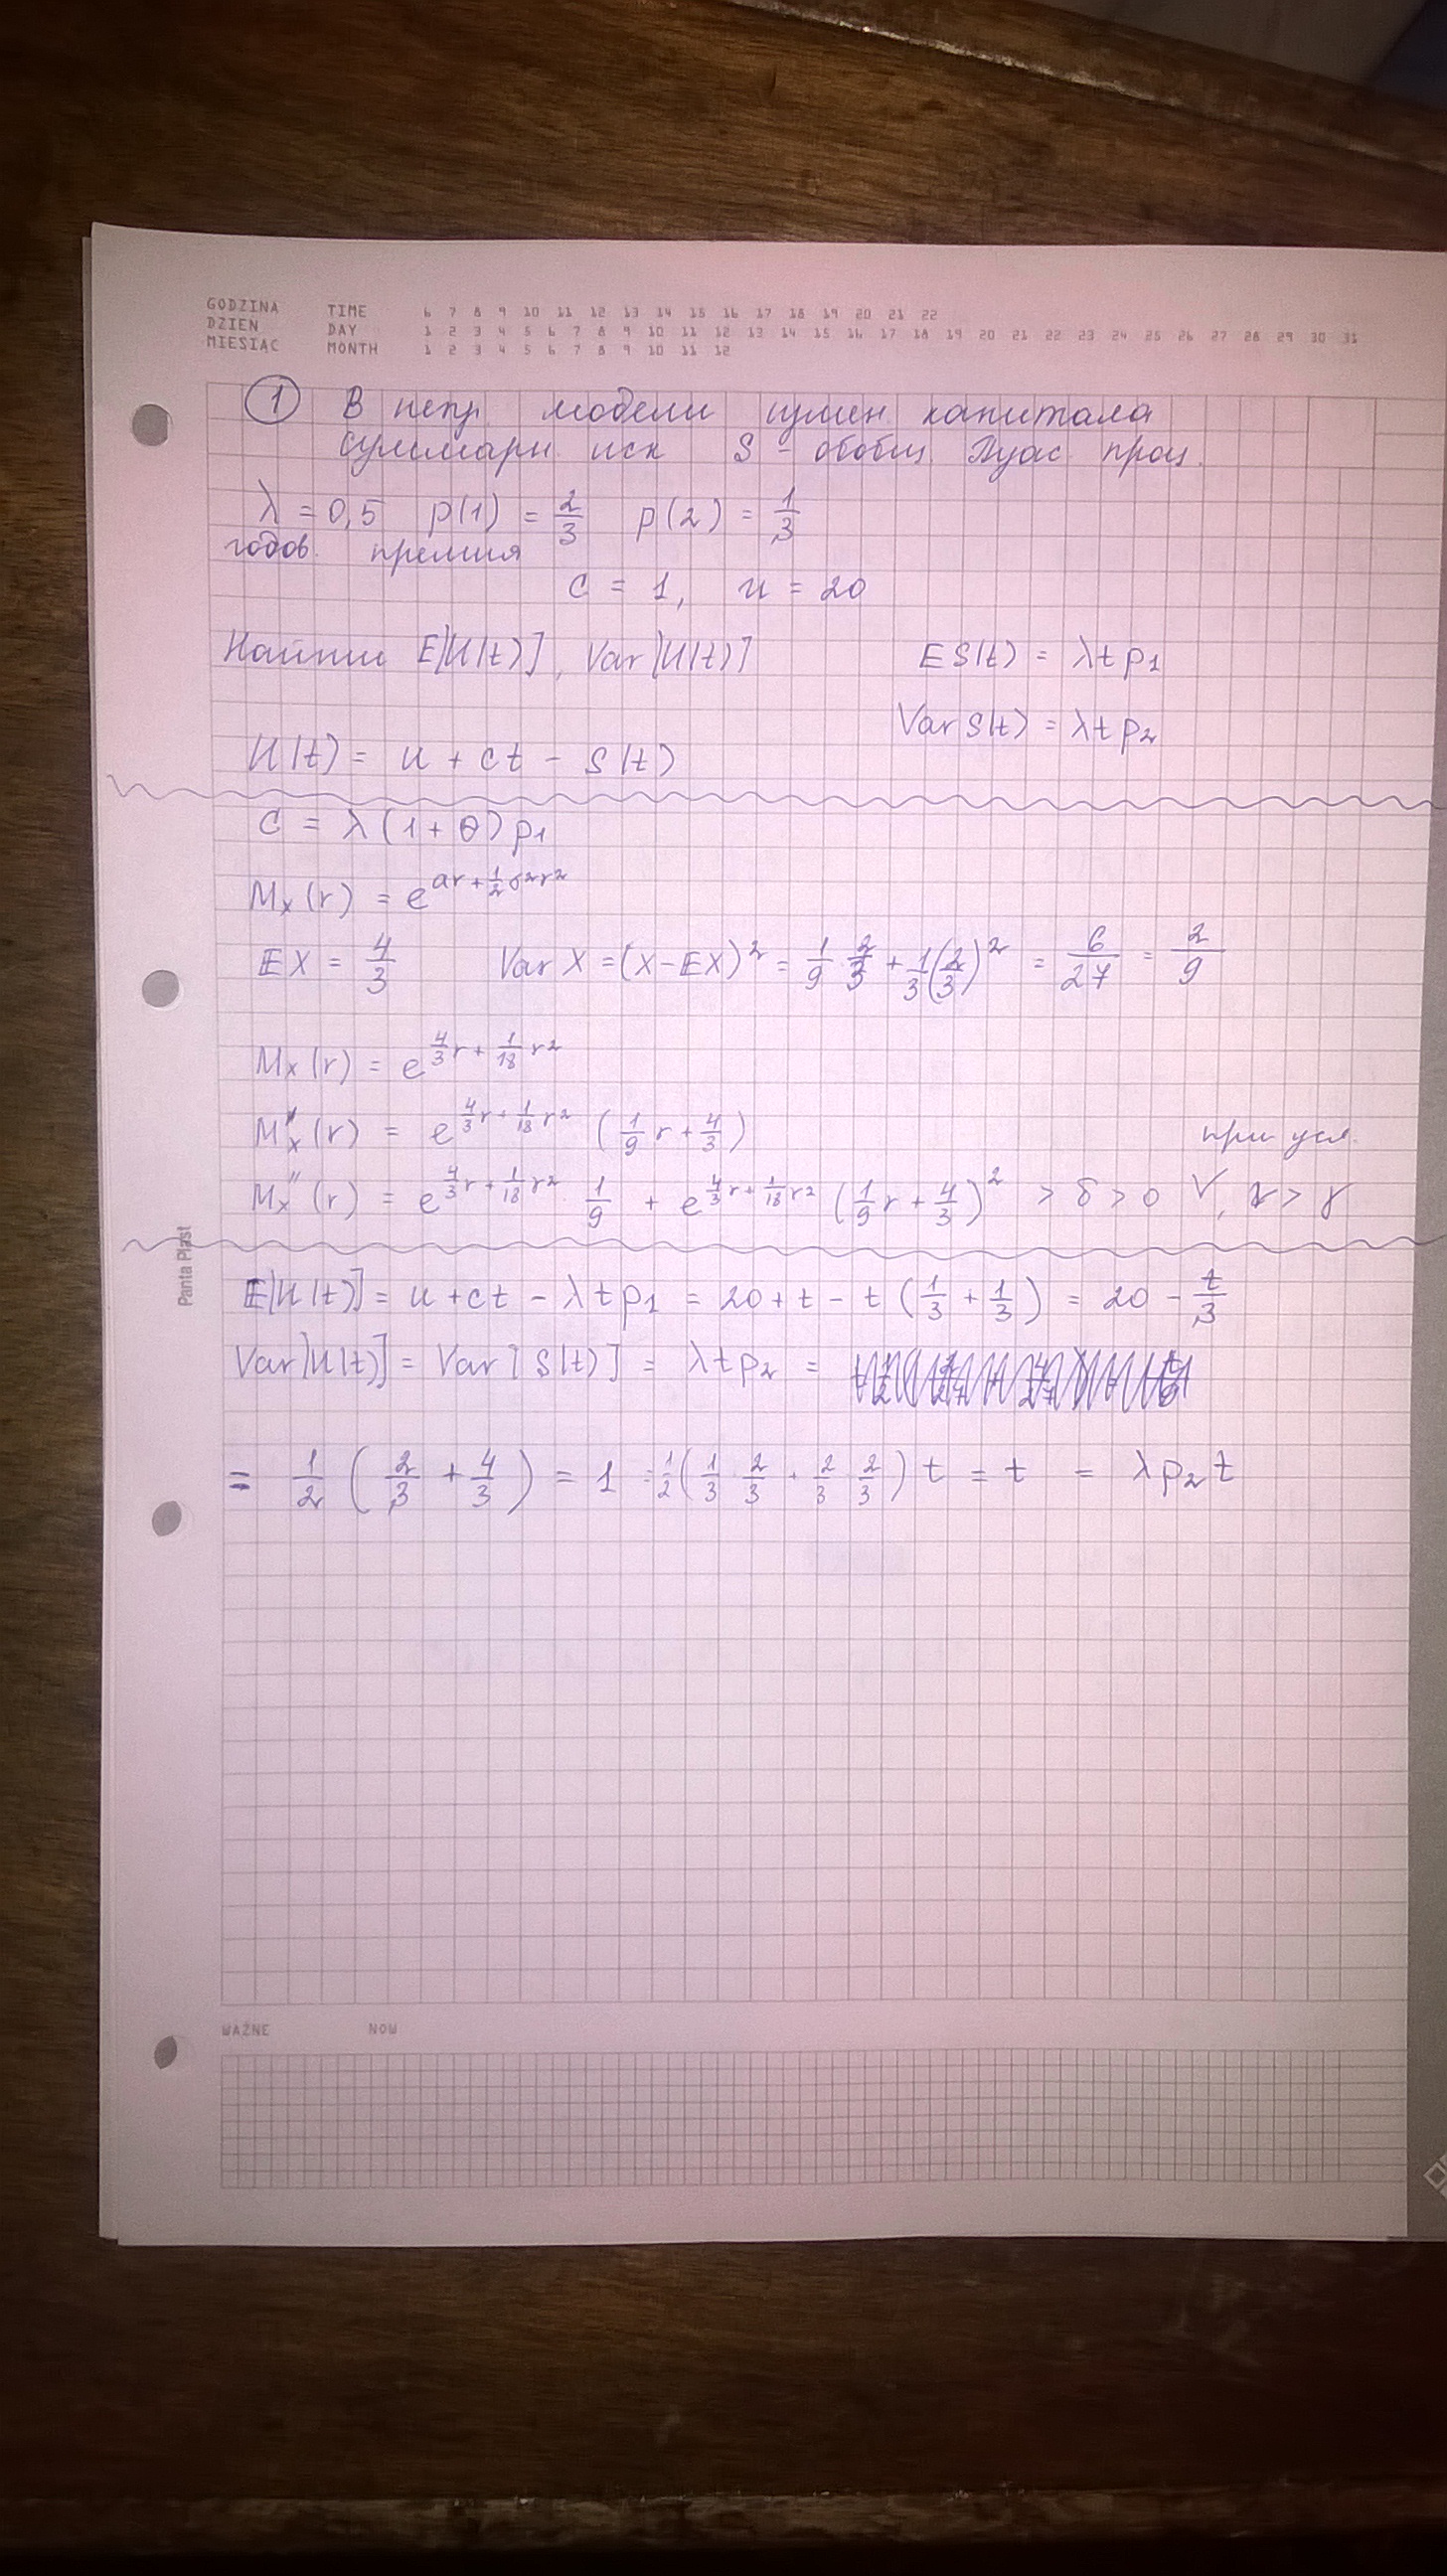 GODZINA TIME 6 7 8 9 10 11 12 13 14 15 16 17 18 19 20 21 22
DZIEŃ DAY 1 2 3 4 5 6 7 8 9 10 11 12 13 14 15 16 17 18 19 20 21 22 23 24 25 26 27 28 29 30 31
MIESIĄC MONTH 1 2 3 4 5 6 7 8 9 10 11 12
① В непр. модели измен. капитала
суммарн. иск S - обобщ. Пуас. проц.
λ = 0,5 p(1) = 2/3 p(2) = 1/3
годов. премия
c = 1, u = 20
Найти E[U(t)], Var[U(t)]
ES(t) = λtp₁
Var S(t) = λtp₂
U(t) = u + ct - S(t)
c = λ(1+θ)p₁
Mₓ(r) = e^(ar + 1/2 σ²r²)
EX = 4/3 Var X = (X-EX)² = 1/9 · 2/3 + 1/3(2/3)² = 6/27 = 2/9
Mₓ(r) = e^(4/3 r + 1/18 r²)
Mₓ'(r) = e^(4/3 r + 1/18 r²) (1/9 r + 4/3)
при усл.
Mₓ''(r) = e^(4/3 r + 1/18 r²) 1/9 + e^(4/3 r + 1/18 r²) (1/9 r + 4/3)² > δ > 0 V, r > γ
Panta Plast
E[U(t)] = u + ct - λtp₁ = 20 + t - t(1/3 + 1/3) = 20 - t/3
Var[U(t)] = Var[S(t)] = λtp₂ =
= 1/2 (2/3 + 4/3) = 1 = 1/2 (1/3 · 2/3 + 2/3 · 2/3) t = t = λp₂t
WAŻNE NOW